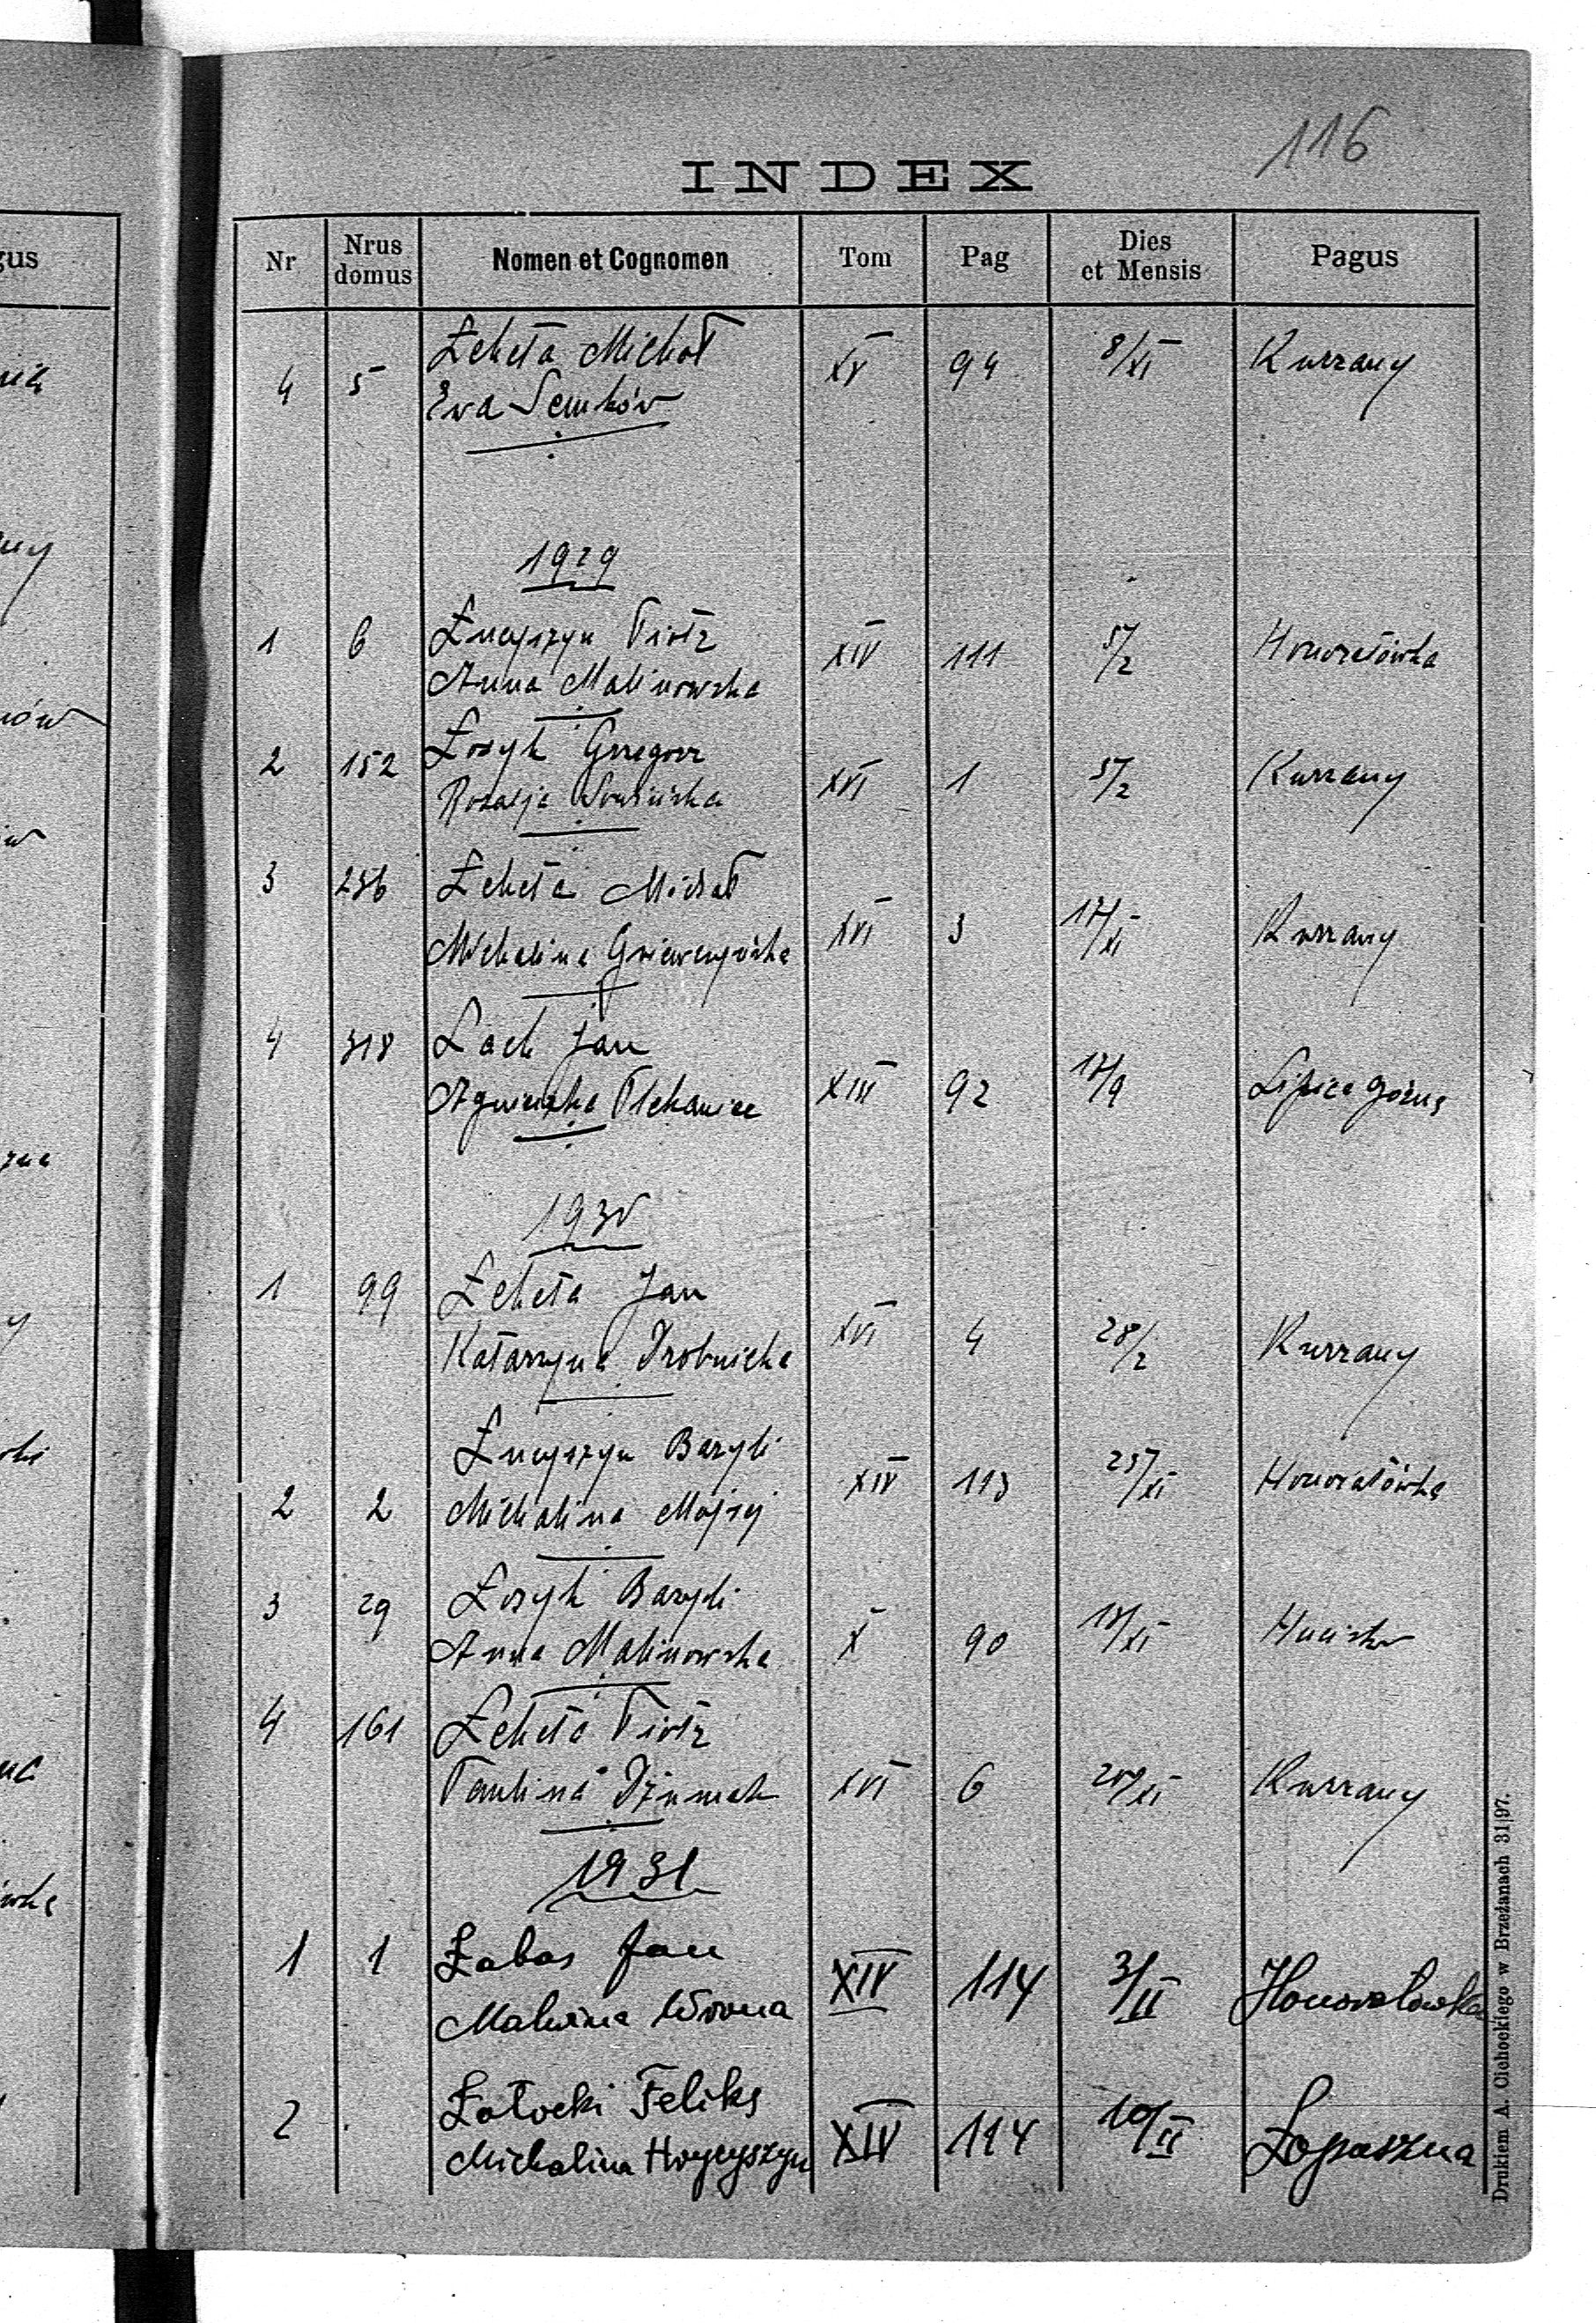 116
INDEX
Nr Nrus domus Nomen et Cognomen Tom Pag Dies et Mensis Pagus
4 5 Łeheta Michał XV 94 8/XI Kurzany
Ewa Semków
1929
1 6 Łucyszyn Piotr XIV 111 5/2 Honoratówka
Anna Malinowska
2 152 Łosyk Grzegorz XVI 1 5/2 Kurzany
Rozalja
3 236 Łeheta Michał XVI 3 17/XI Kurzany
Michalina
4 318 Łach Jan XIII 92 17/9 Lipica górna
Agnieszka
1930
1 99 Łeheta Jan XVI 4 28/2 Kurzany
Katarzyna Drobnicka
Łucyszyn Bazyli XIV 113 25/XI Honoratówka
2 2 Michalina Mojsej
3 29 Łosyk Bazyli X 90 18/XI Hucisko
Anna Malinowska
4 161 Łeheta Piotr XVI 6 /XI Kurzany
Paulina Dziumak
1931
1 1 Łabas Jan XIV 114 3/II Honoratówka
Malwina Wrona
2 . Łatocki Feliks XIV 114 10/II Łopuszna
Michalina Hrycyszyn
Drukiem A. Cichockiego w Brzeżanach 31|97.